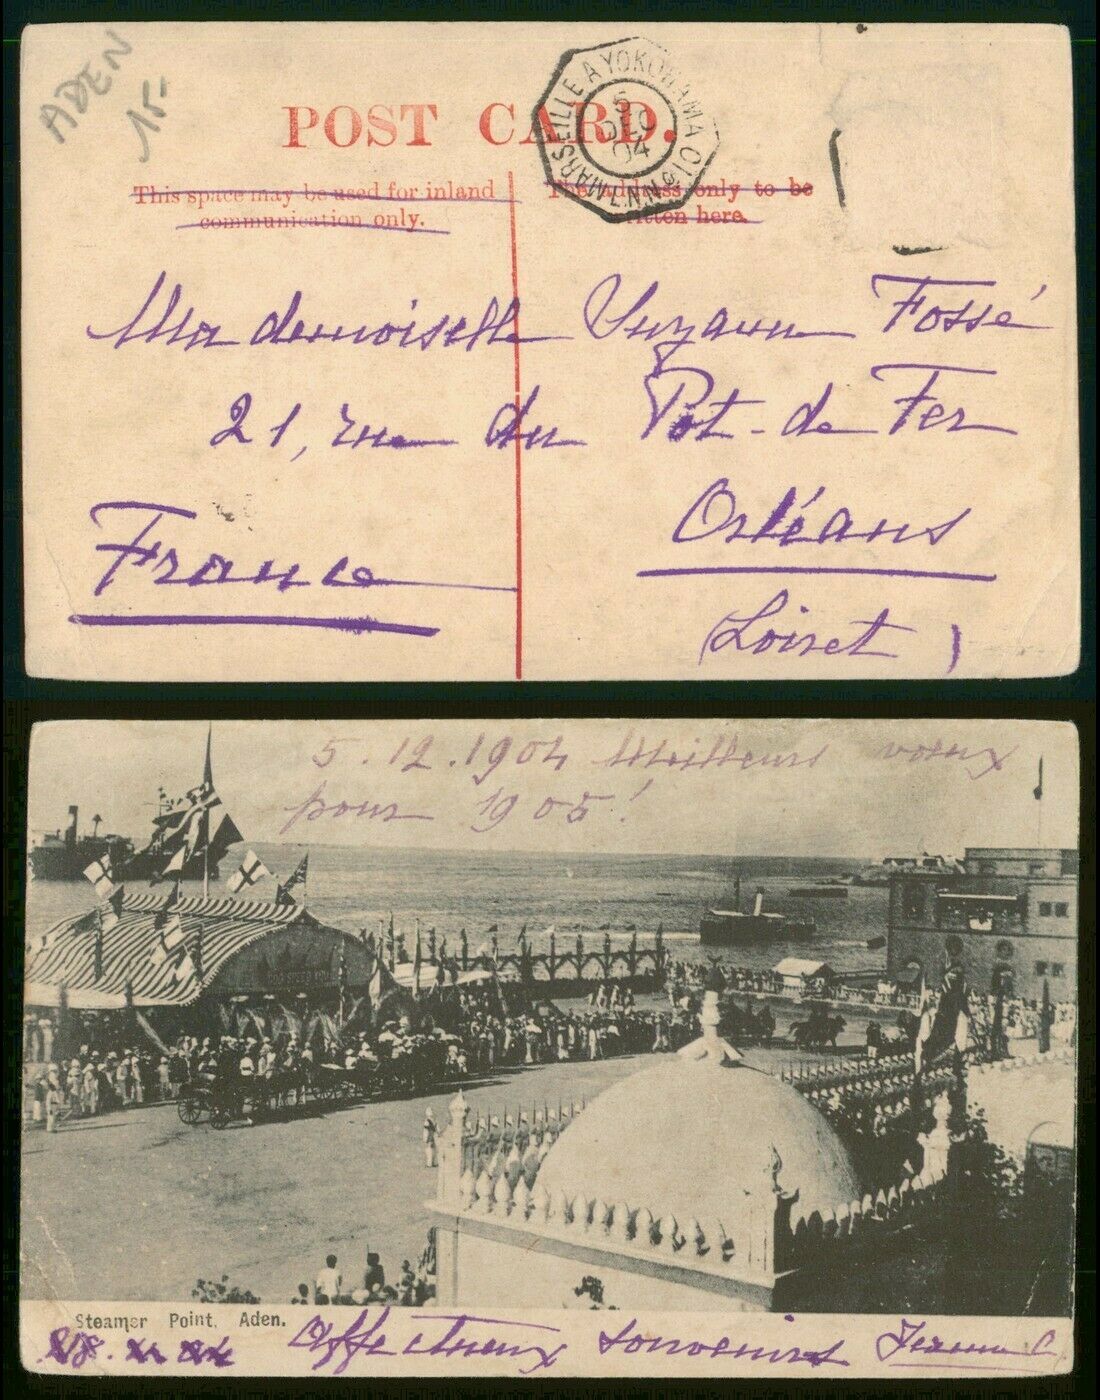 ADEN
15-
POST CARD.
MARSEILLE A YOKOHAMA
5
DEC
04
L.N N° 10
This space may be used for inland
communication only.
The address only to be
written here.
Mademoiselle Suzanne Fossé
21, rue du Pot-de Fer
Orléans
France
(Loiret)
5.12.1904 Meilleurs voeux
pour 1905!
Steamer Point, Aden.
Affectueux souvenirs